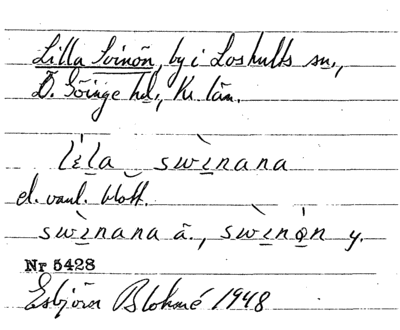 Lilla Svinön, by i Loshults sn.,
Ö. Göinge hd., Kr. län.
lìla swìnana
el. vanl. blott.
swìnana ä., swìnȯ̀n y.
Nr 5428
Esbjörn Blohmé 1948